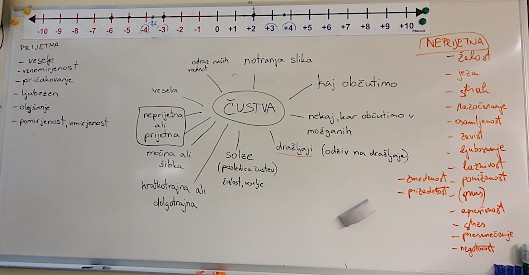 -10 -9 -8 -7 -6 -5 -4 -3 -2 -1 0 +1 +2 +3 +4 +5 +6 +7 +8 +9 +10
PRIJETNA
- veselje
- vznemirjenost
- pričakovanje
- ljubezen
- olajšanje
- pomirjenost, umirjenost
odraz naših
vrednot
notranja slika
vesela
kaj občutimo
ČUSTVA
neprijetna
ali
prijetna
nekaj, kar občutimo v
možganih
močna ali
šibka
solze
(posledica čustev)
žalost, veselje
dražljaji (odziv na dražljaje)
kratkotrajna ali
dolgotrajna
NEPRIJETNA
- žalost
- jeza
- strah
- razočaranje
- osamljenost
- zavist
- ljubosumje
- zmedenost
- ponižanost
- prizadetost
- (gnus)
- stres
- presenečenje
- negotovost